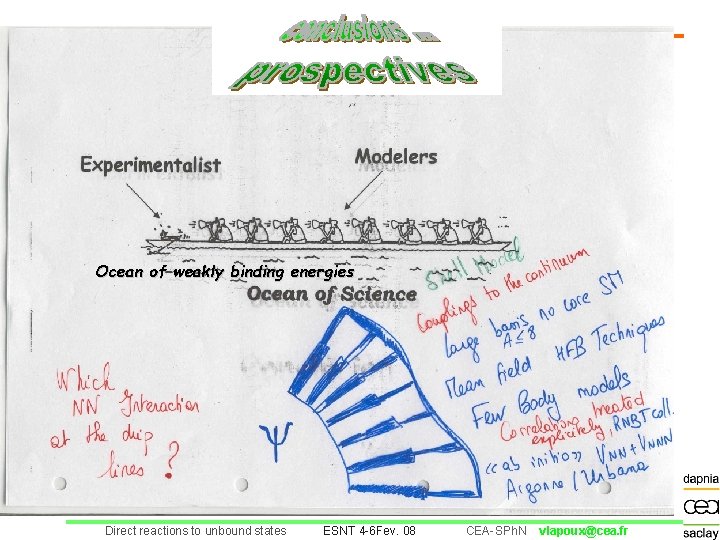 conclusions ...
prospectives
Experimentalist
Modelers
Ocean of weakly binding energies
Ocean of Science
Shell Model
Couplings to the continuum
large basis no core SM
A ≤ 8
Mean field HFB Techniques
Few Body models
Correlations treated
explicitely, RNBT coll.
<<ab initio>> VNN + VNNN
Argonne / Urbana
Which
NN Interaction
at the drip
lines ?
Ψ
dapnia
cea
saclay
Direct reactions to unbound states
ESNT 4-6 Fev. 08
CEA-SPhN
vlapoux@cea.fr